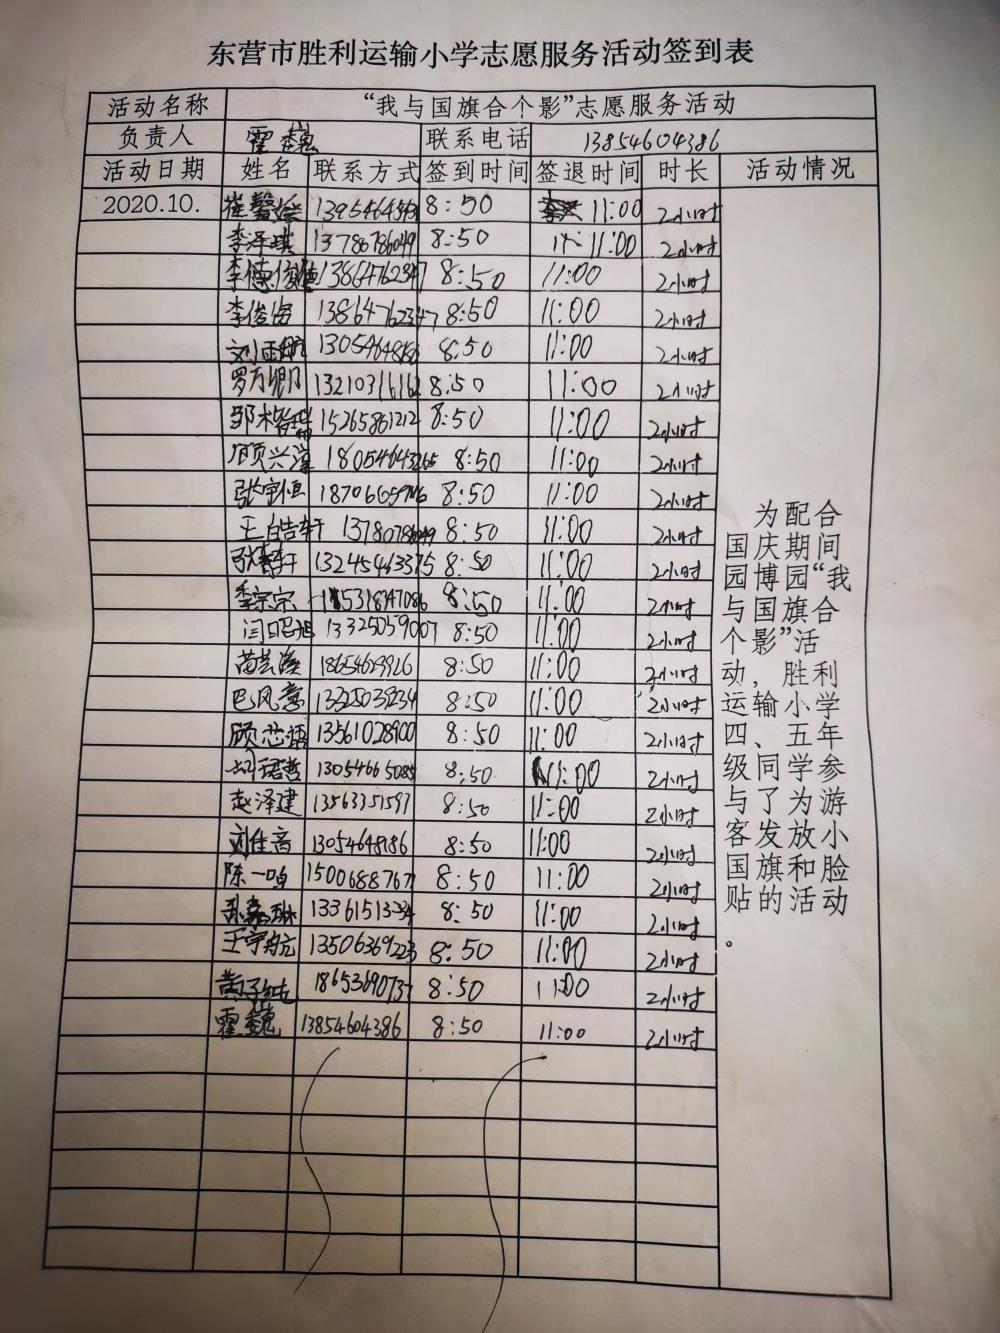 东营市胜利运输小学志愿服务活动签到表
活动名称 “我与国旗合个影”志愿服务活动
负责人 霍巍 联系电话 13854604386
活动日期 姓名 联系方式 签到时间 签退时间 时长 活动情况
2020.10. 崔馨 8:50 11:00 2小时
李泽琪 13780786049 8:50 11:00 2小时
李德俊 13864762347 8:50 11:00 2小时
李俊 13864762347 8:50 11:00 2小时
刘雨航 8:50 11:00 2小时
罗方卿 13210316162 8:50 11:00 2小时
邹 15265861212 8:50 11:00 2小时
顾兴 18054643265 8:50 11:00 2小时
张宇恒 8:50 11:00 2小时
王皓轩 13780786049 8:50 11:00 2小时
张轩 13245463375 8:50 11:00 2小时
李宗宗 15318347086 8:50 11:00 2小时
闫昭旭 13325059007 8:50 11:00 2小时
苗芸溪 18654629926 8:50 11:00 2小时
巴风意 13325039234 8:50 11:00 2小时
顾芯语 13561028900 8:50 11:00 2小时
珺哲 13054665085 8:50 11:00 2小时
赵泽建 13563351597 8:50 11:00 2小时
刘佳音 13054648186 8:50 11:00 2小时
陈一鸣 15006887671 8:50 11:00 2小时
孙嘉琳 8:50 11:00 2小时
王宇航 13506369223 8:50 11:00 2小时
黄子 18653690737 8:50 11:00 2小时
霍巍 13854604386 8:50 11:00 2小时
为配合
国庆期间
园博园“我
与国旗合
个影”活
动，胜利
运输小学
四、五年
级同学参
与了为游
客发放小
国旗和脸
贴的活动
。